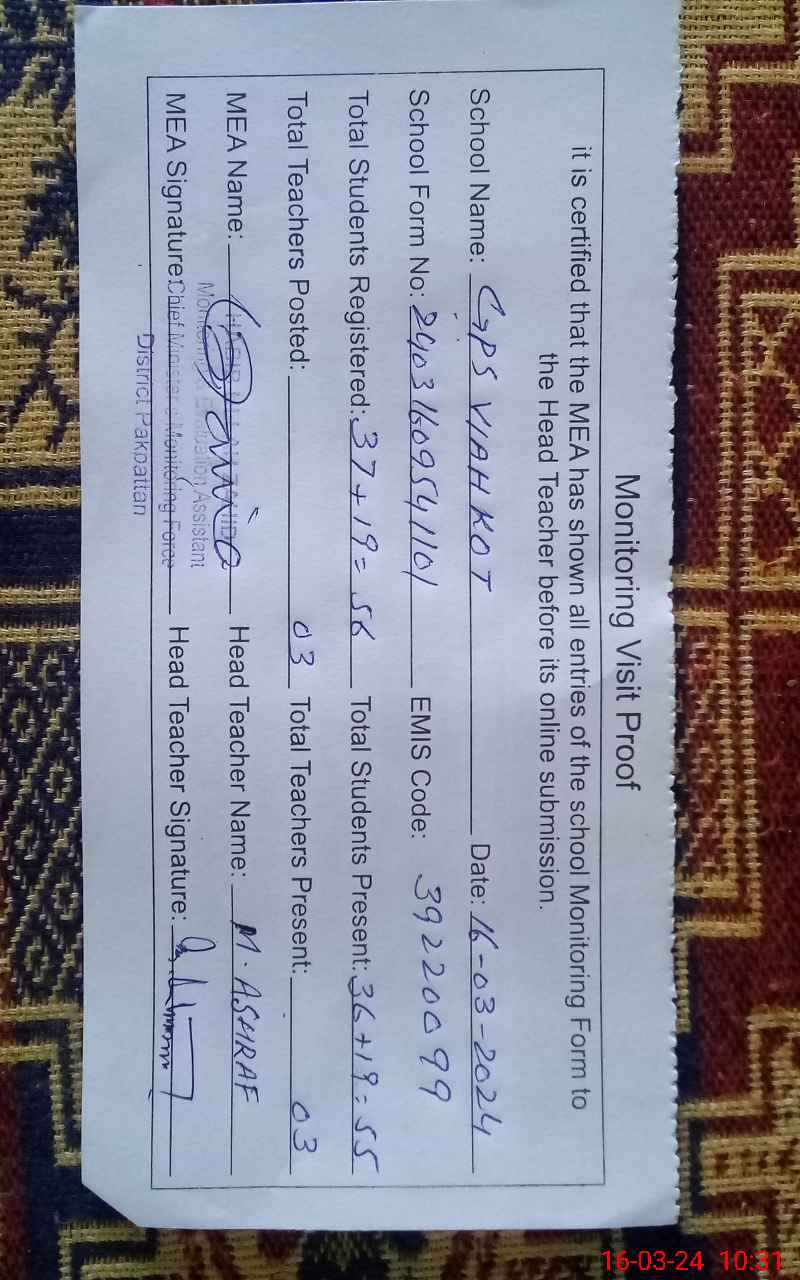 Monitoring Visit Proof
it is certified that the MEA has shown all entries of the school Monitoring Form to
the Head Teacher before its online submission.
School Name: GPS VIAH KOT Date: 16-03-2024
School Form No: 24031609541101 EMIS Code: 39220099
Total Students Registered: 37+19= 56 Total Students Present: 36+19= 55
Total Teachers Posted: 03 Total Teachers Present: 03
MEA Name: Head Teacher Name: M. ASHRAF
Monitoring & Evaluation Assistant
MEA Signature: Head Teacher Signature:
Chief Minister's Monitoring Force
District Pakpattan
16-03-24 10:31